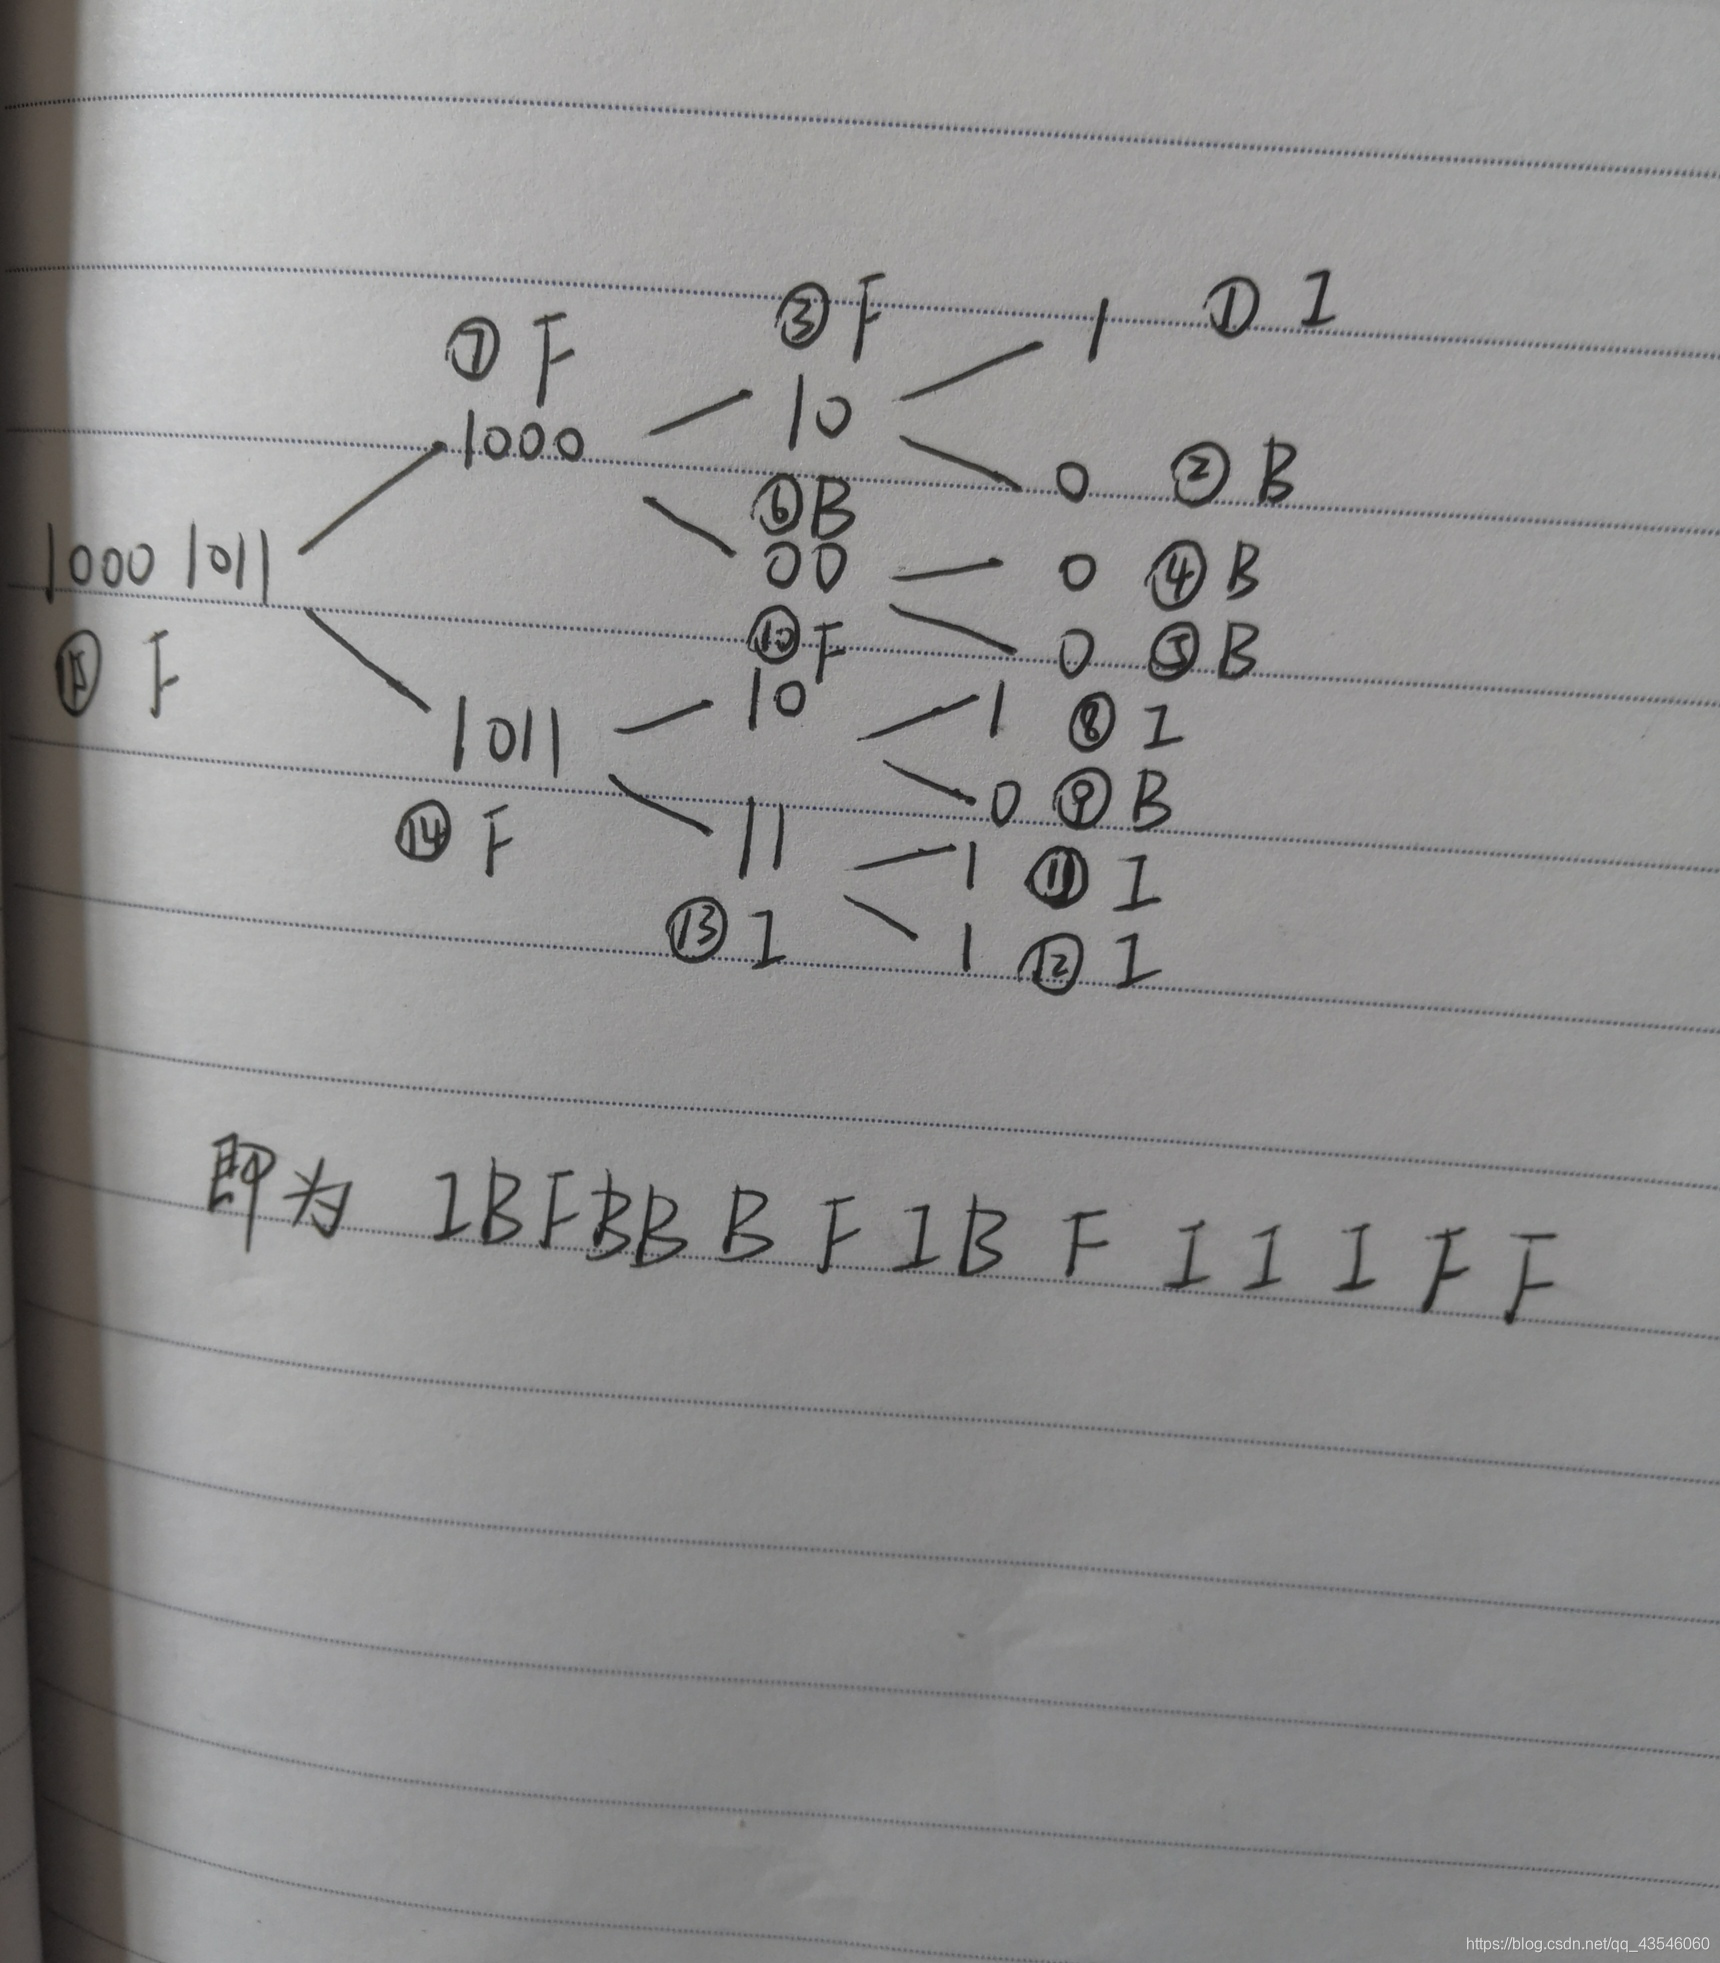 ③ F 1 ① I
⑦ F
10
1000 0 ② B
⑥ B
1000 1011 00 0 ④ B
⑩ F 0 ⑤ B
⑮ F 10 1 ⑧ I
1011
0 ⑨ B
⑭ F 11 1 ⑪ I
⑬ I 1 ⑫ I
即为 I B F B B B F I B F I I I F F
https://blog.csdn.net/qq_43546060